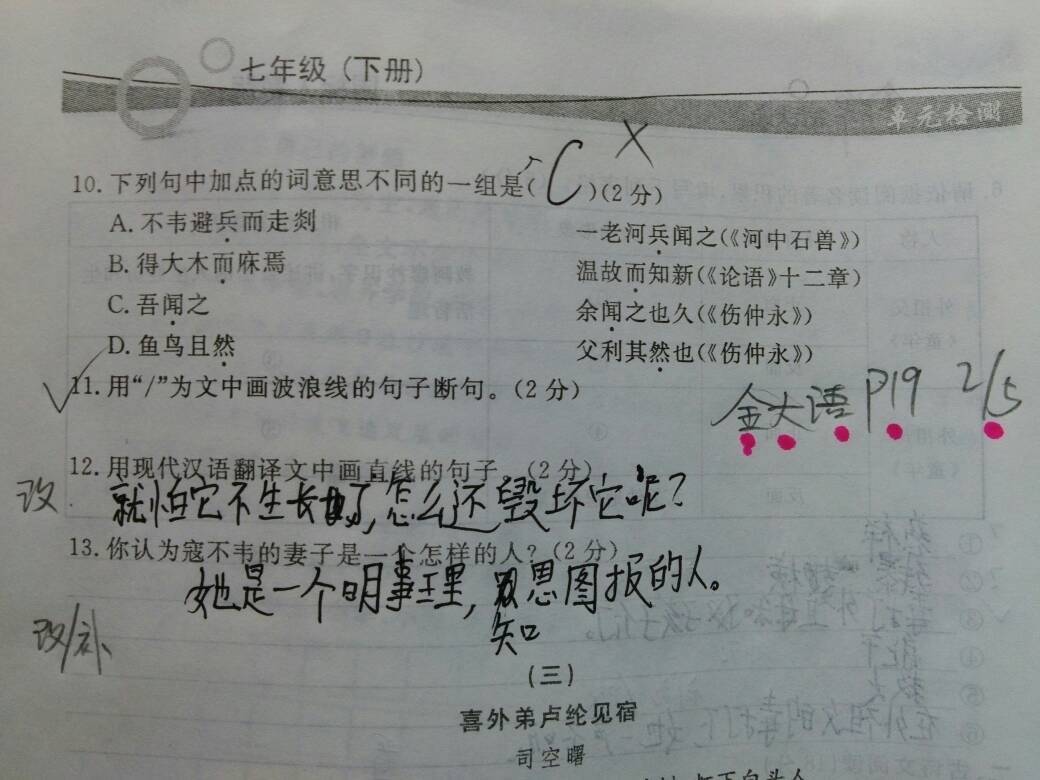 七年级（下册）
单元检测
10. 下列句中加点的词意思不同的一组是( C )(2分)
A. 不韦避兵而走剡 一老河兵闻之(《河中石兽》)
B. 得大木而庥焉 温故而知新(《论语》十二章)
C. 吾闻之 余闻之也久(《伤仲永》)
D. 鱼鸟且然 父利其然也(《伤仲永》)
11. 用“/”为文中画波浪线的句子断句。(2分)
金大语 P19 2/5
12. 用现代汉语翻译文中画直线的句子。(2分)
改 就怕它不生长了,怎么还毁坏它呢?
13. 你认为寇不韦的妻子是一个怎样的人? (2分)
她是一个明事理, 思图报的人。
知
改/补
(三)
喜外弟卢纶见宿
司空曙